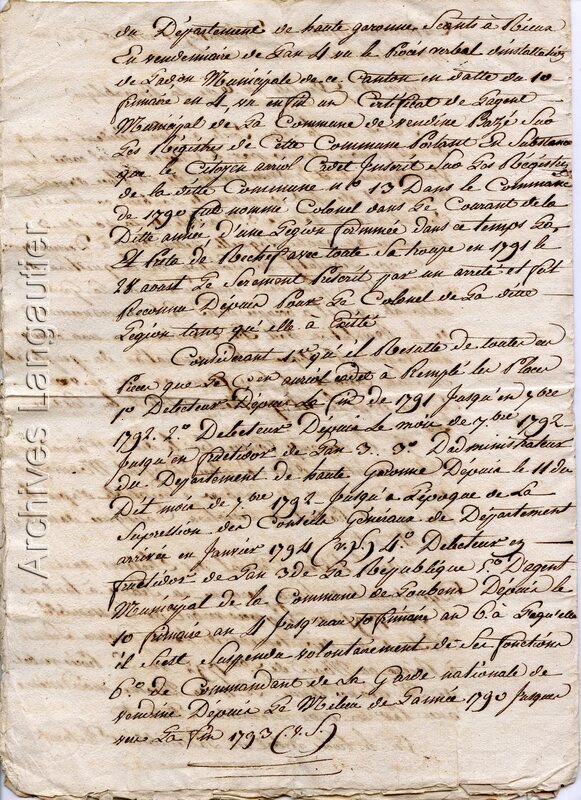 du Département de haute garonne, Seante à Rieux
En vendemiaire de Lan 4 vu le Procès verbal d'installation
de Ladon Municipale de ce Canton en datte du 10
frimaire en 4, vu enfin un Certificat de Lagent
Municipal de La Commune de vendine Sur
Les Registres de Cette Commune Portant En Substance
que le Citoyen auriol Cadet Inscrit Sur Les Registres
de la ditte Commune n.o 13 Dans le Commanc
de 1790 fut nommé Colonel dans Le Courant de la
Ditte année d'une Legion formmée dans ce temps La
Et Preta de Rechef avec toute Sa troupe en 1791 le
28 aoust Le Serement Prescrit par un arrete et fut
Reconnu Depuis Pour Le Colonel de La ditte
Legion tant qu'elle à Existé
Considerant qu'il Resulte de toutes ces
Pieces que Le C.en auriol cadet à Remple les Places
1.o Delecteur Depuis La fin de 1791 Jusqu'en 7bre
1792. 2.o Delecteur Depuis Le mois de 7.bre 1792
Jusqu'en fructidor de Lan 3. 3.o Dadministrateur
du Departement de haute Garonne Depuis le 11 du
Dit mois de 7.bre 1792 Jusqu'a Lépoque de La
Supression des Conseils Généraux de Département
arrivée en Janvier 1794 (v.s.) 4.o Delecteur en
fructidor de Lan 3 de La République 5.o D'agent
Municipal de la Commune de Loubens Depuis le
10 frimaire an 4 Jusqu'au 10 frimaire an 6. à Laquelle
il Sest Suspendu volontairement de Ses fonctions
6.o de Commandant de la Garde nationale de
vendine Depuis Le Milieu de Lannée 1790 Jusques
vers La fin 1793 (v.s.)
Archives Langautier